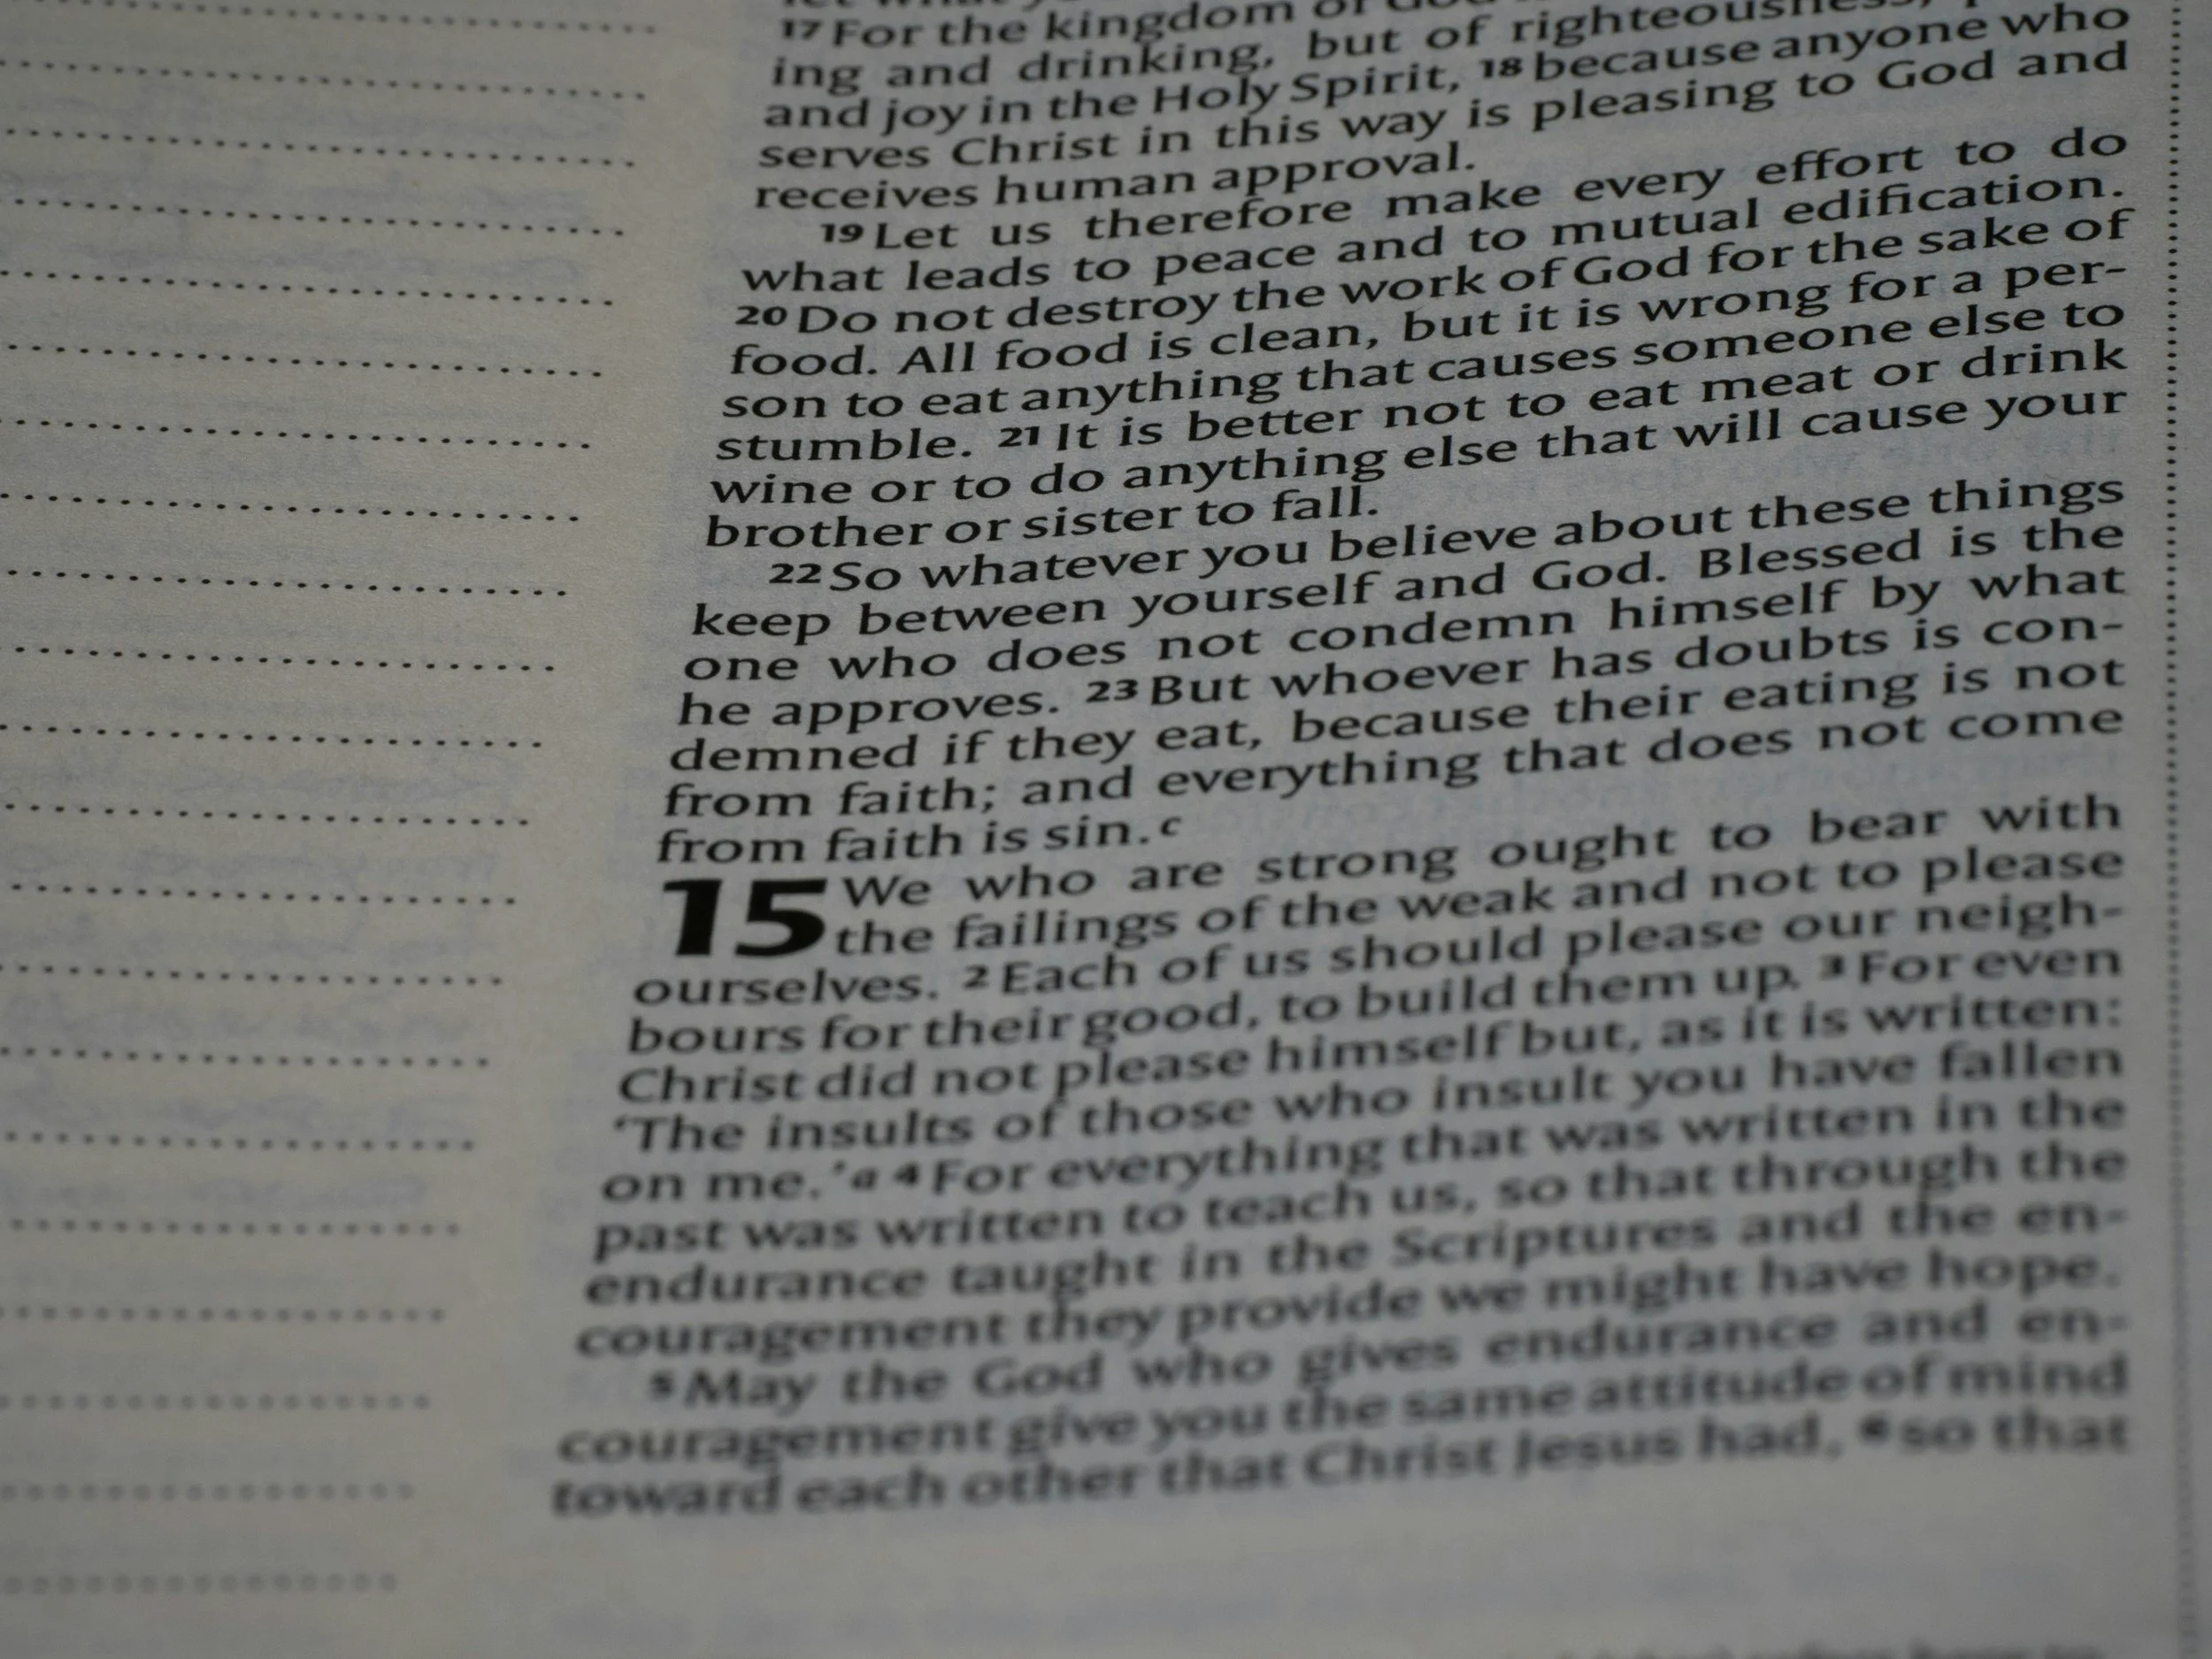 17 For the kingdom of God
ing and drinking, but of righteousness,
and joy in the Holy Spirit, 18 because anyone who
serves Christ in this way is pleasing to God and
receives human approval.
19 Let us therefore make every effort to do
what leads to peace and to mutual edification.
20 Do not destroy the work of God for the sake of
food. All food is clean, but it is wrong for a per-
son to eat anything that causes someone else to
stumble. 21 It is better not to eat meat or drink
wine or to do anything else that will cause your
brother or sister to fall.
22 So whatever you believe about these things
keep between yourself and God. Blessed is the
one who does not condemn himself by what
he approves. 23 But whoever has doubts is con-
demned if they eat, because their eating is not
from faith; and everything that does not come
from faith is sin. c
15 We who are strong ought to bear with
the failings of the weak and not to please
ourselves. 2 Each of us should please our neigh-
bours for their good, to build them up. 3 For even
Christ did not please himself but, as it is written:
‘The insults of those who insult you have fallen
on me.’ a 4 For everything that was written in the
past was written to teach us, so that through the
endurance taught in the Scriptures and the en-
couragement they provide we might have hope.
5 May the God who gives endurance and en-
couragement give you the same attitude of mind
toward each other that Christ Jesus had, 6 so that